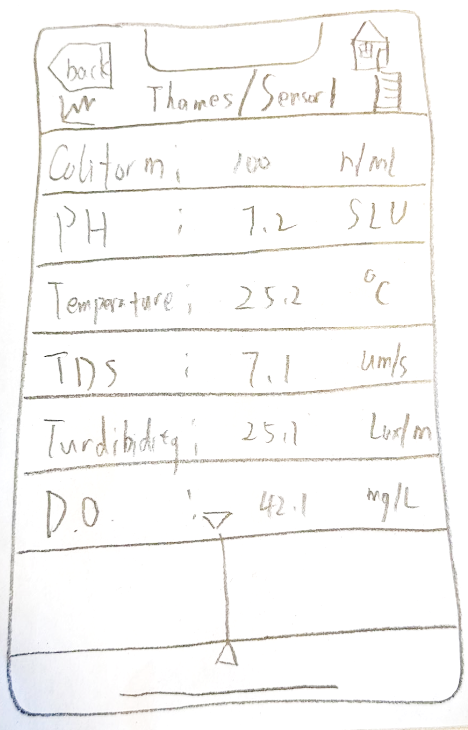 back
Thames/Sensor1
Coliform: 100 n/ml
PH : 7.2 SLU
Temperature: 25.2 °C
TDS : 7.1 um/s
Turdibidity: 25.1 Lux/m
D.O : 42.1 mg/L